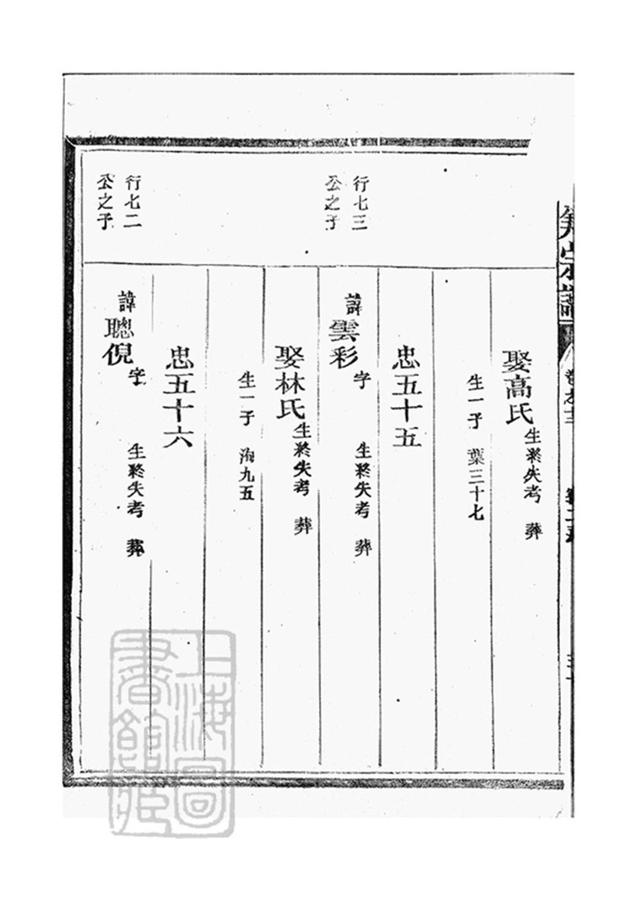 娶高氏 生終失考 葬
生一子 葉三十七
忠五十五
行七三
公之子
諱雲彩 字 生終失考 葬
娶林氏 生終失考 葬
生一子 海九五
忠五十六
行七二
公之子
諱聰倪 字 生終失考 葬
上海圖
書館藏